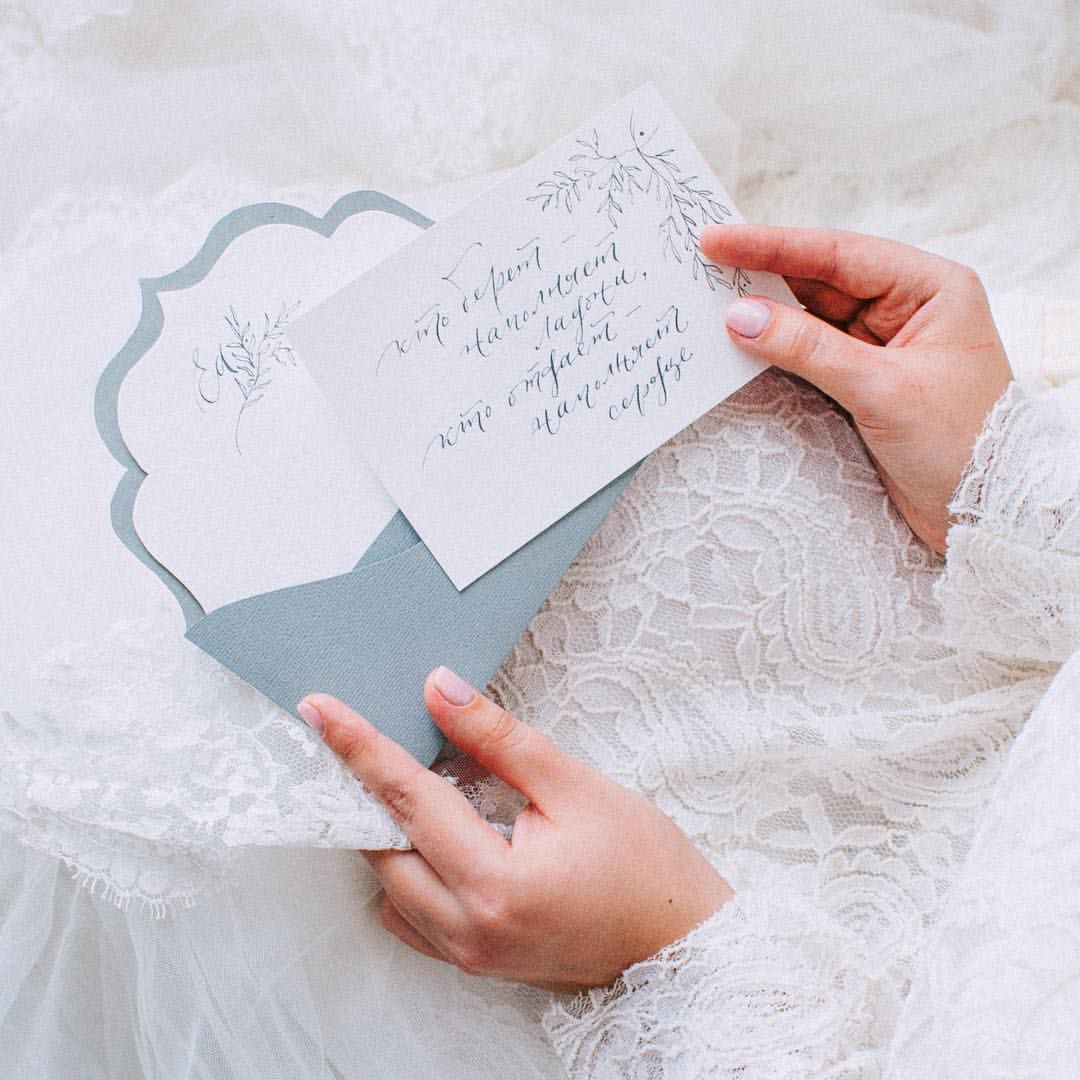 кто берет –
наполняет
ладони,
кто отдает –
наполняет
сердце